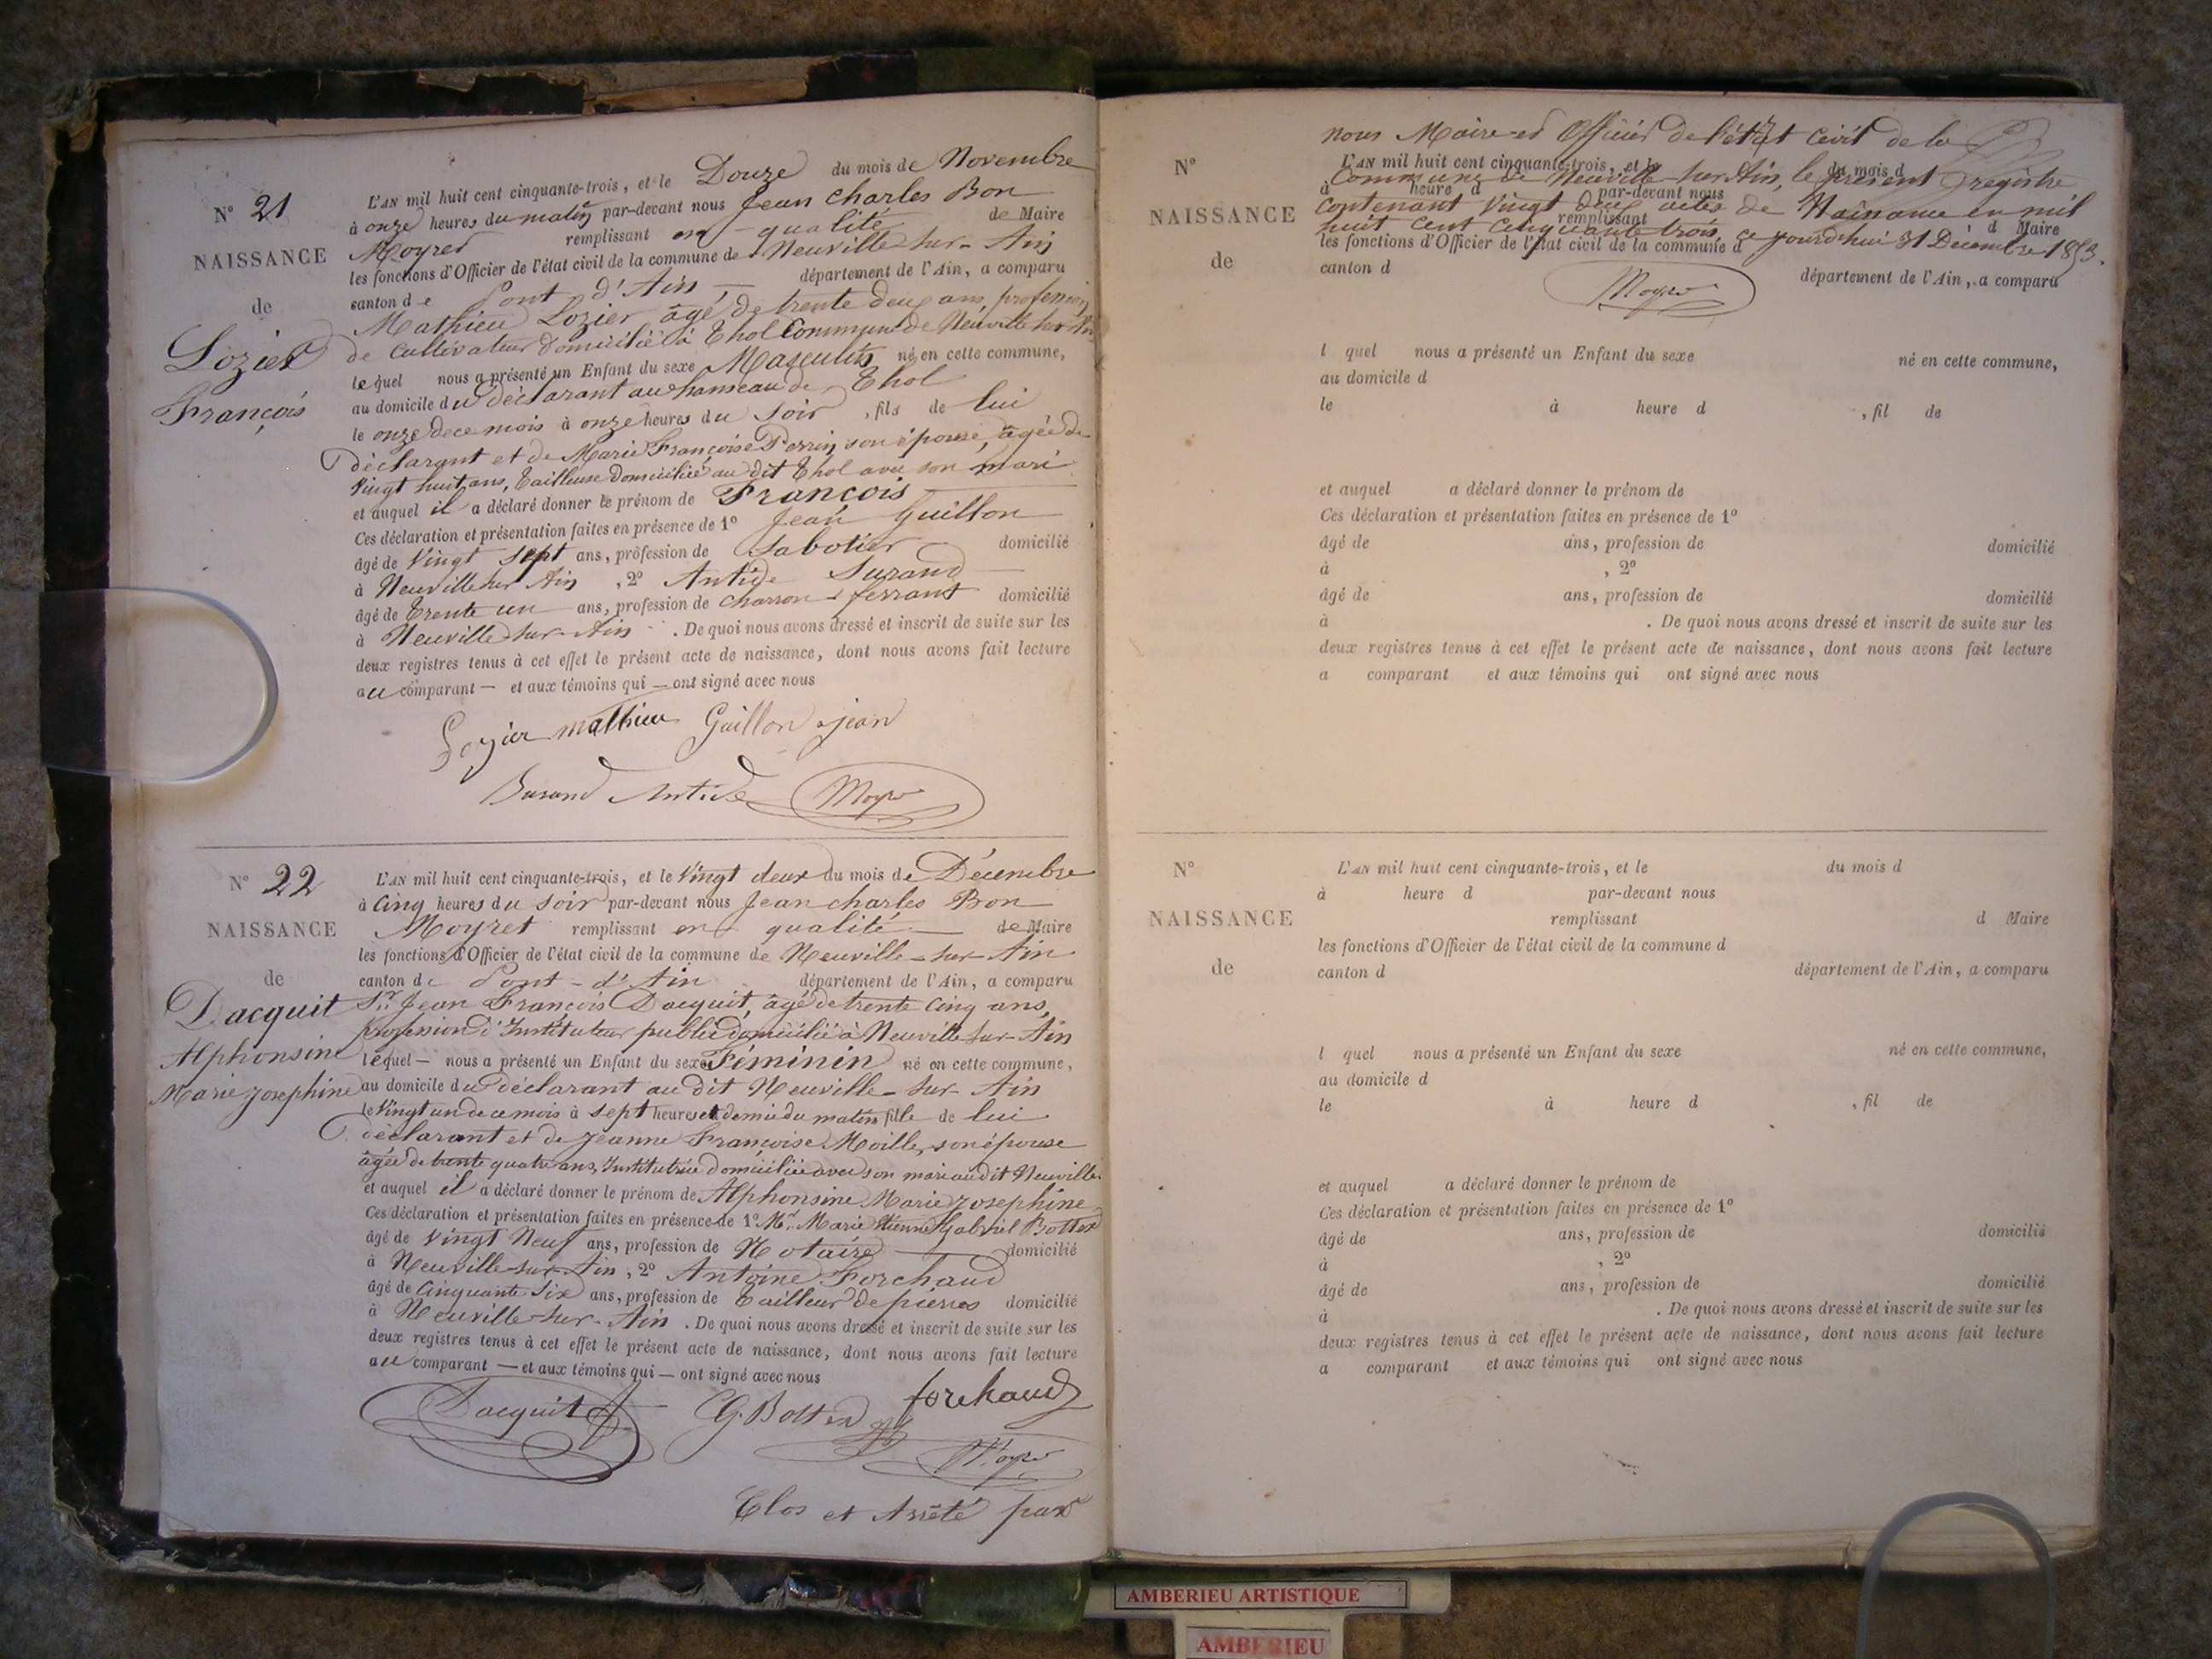 N° 21
NAISSANCE
de
Lozier
François
L'AN mil huit cent cinquante-trois, et le Douze du mois de Novembre
à onze heures du matin par-devant nous Jean Charles Bon
Moyret remplissant en qualité de Maire
les fonctions d'Officier de l'état civil de la commune de Neuville-sur-Ain
canton de Pont d'Ain département de l'Ain, a comparu
Mathieu Lozier âgé de trente deux ans, profession
de Cultivateur domicilié à Thol Commune de Neuville sur Ain
lequel nous a présenté un Enfant du sexe Masculin né en cette commune,
au domicile du déclarant au hameau de Thol
le onze de ce mois à onze heures du soir, fils de lui
déclarant et de Marie Françoise Perrin son épouse, âgée de
vingt huit ans, tailleuse domiciliée au dit Thol avec son mari
et auquel il a déclaré donner le prénom de François
Ces déclaration et présentation faites en présence de 1° Jean Guillon
âgé de vingt sept ans, profession de Sabotier domicilié
à Neuville sur Ain, 2° Antide Durand
âgé de trente un ans, profession de charron ferrant domicilié
à Neuville-sur-Ain. De quoi nous avons dressé et inscrit de suite sur les
deux registres tenus à cet effet le présent acte de naissance, dont nous avons fait lecture
au comparant — et aux témoins qui — ont signé avec nous
Lozier mathieu Guillon jean
Durand Antide Moyret
N° 22
NAISSANCE
de
Dacquit
Alphonsine
Marie Josephine
L'AN mil huit cent cinquante-trois, et le Vingt deux du mois de Décembre
à Cinq heures du soir par-devant nous Jean charles Bon
Moyret remplissant en qualité de Maire
les fonctions d'Officier de l'état civil de la commune de Neuville-sur-Ain
canton de Pont-d'Ain département de l'Ain, a comparu
Sr. Jean François Dacquit, âgé de trente cinq ans,
profession d'Instituteur public domicilié à Neuville-sur-Ain
lequel — nous a présenté un Enfant du sexe Féminin né en cette commune,
au domicile du déclarant au dit Neuville-sur-Ain
le Vingt un de ce mois à sept heures et demie du matin fille de lui
déclarant et de Jeanne Françoise Moille, son épouse
âgée de trente quatre ans, Institutrice domiciliée avec son mari au dit Neuville
et auquel il a déclaré donner le prénom de Alphonsine Marie Josephine
Ces déclaration et présentation faites en présence de 1° Mr. Marie Etienne Gabriel Bottex
âgé de vingt Neuf ans, profession de Notaire domicilié
à Neuville-sur-Ain, 2° Antoine Forchaud
âgé de Cinquante Six ans, profession de Tailleur de pierres domicilié
à Neuville-sur-Ain. De quoi nous avons dressé et inscrit de suite sur les
deux registres tenus à cet effet le présent acte de naissance, dont nous avons fait lecture
au comparant — et aux témoins qui — ont signé avec nous
Dacquit G. Bottex forchaud
Moyret
Clos et Arrêté par
nous Maire et Officier de l'état civil de la
N°
NAISSANCE
de
L'AN mil huit cent cinquante-trois, et le du mois d
Commune de Neuville-sur-Ain, le présent registre
à heure d par-devant nous
contenant vingt deux actes de Naissance en mil
remplissant d Maire
huit cent cinquante trois, ce jourd'hui 31 Décembre 1853.
les fonctions d'Officier de l'état civil de la commune d
canton d département de l'Ain, a comparu
Moyret
l quel nous a présenté un Enfant du sexe né en cette commune,
au domicile d
le à heure d , fil de
et auquel a déclaré donner le prénom de
Ces déclaration et présentation faites en présence de 1°
âgé de ans, profession de domicilié
à , 2°
âgé de ans, profession de domicilié
à . De quoi nous avons dressé et inscrit de suite sur les
deux registres tenus à cet effet le présent acte de naissance, dont nous avons fait lecture
a comparant et aux témoins qui ont signé avec nous
N°
NAISSANCE
de
L'AN mil huit cent cinquante-trois, et le du mois d
à heure d par-devant nous
remplissant d Maire
les fonctions d'Officier de l'état civil de la commune d
canton d département de l'Ain, a comparu
l quel nous a présenté un Enfant du sexe né en cette commune,
au domicile d
le à heure d , fil de
et auquel a déclaré donner le prénom de
Ces déclaration et présentation faites en présence de 1°
âgé de ans, profession de domicilié
à , 2°
âgé de ans, profession de domicilié
à . De quoi nous avons dressé et inscrit de suite sur les
deux registres tenus à cet effet le présent acte de naissance, dont nous avons fait lecture
a comparant et aux témoins qui ont signé avec nous
AMBERIEU ARTISTIQUE
AMBERIEU